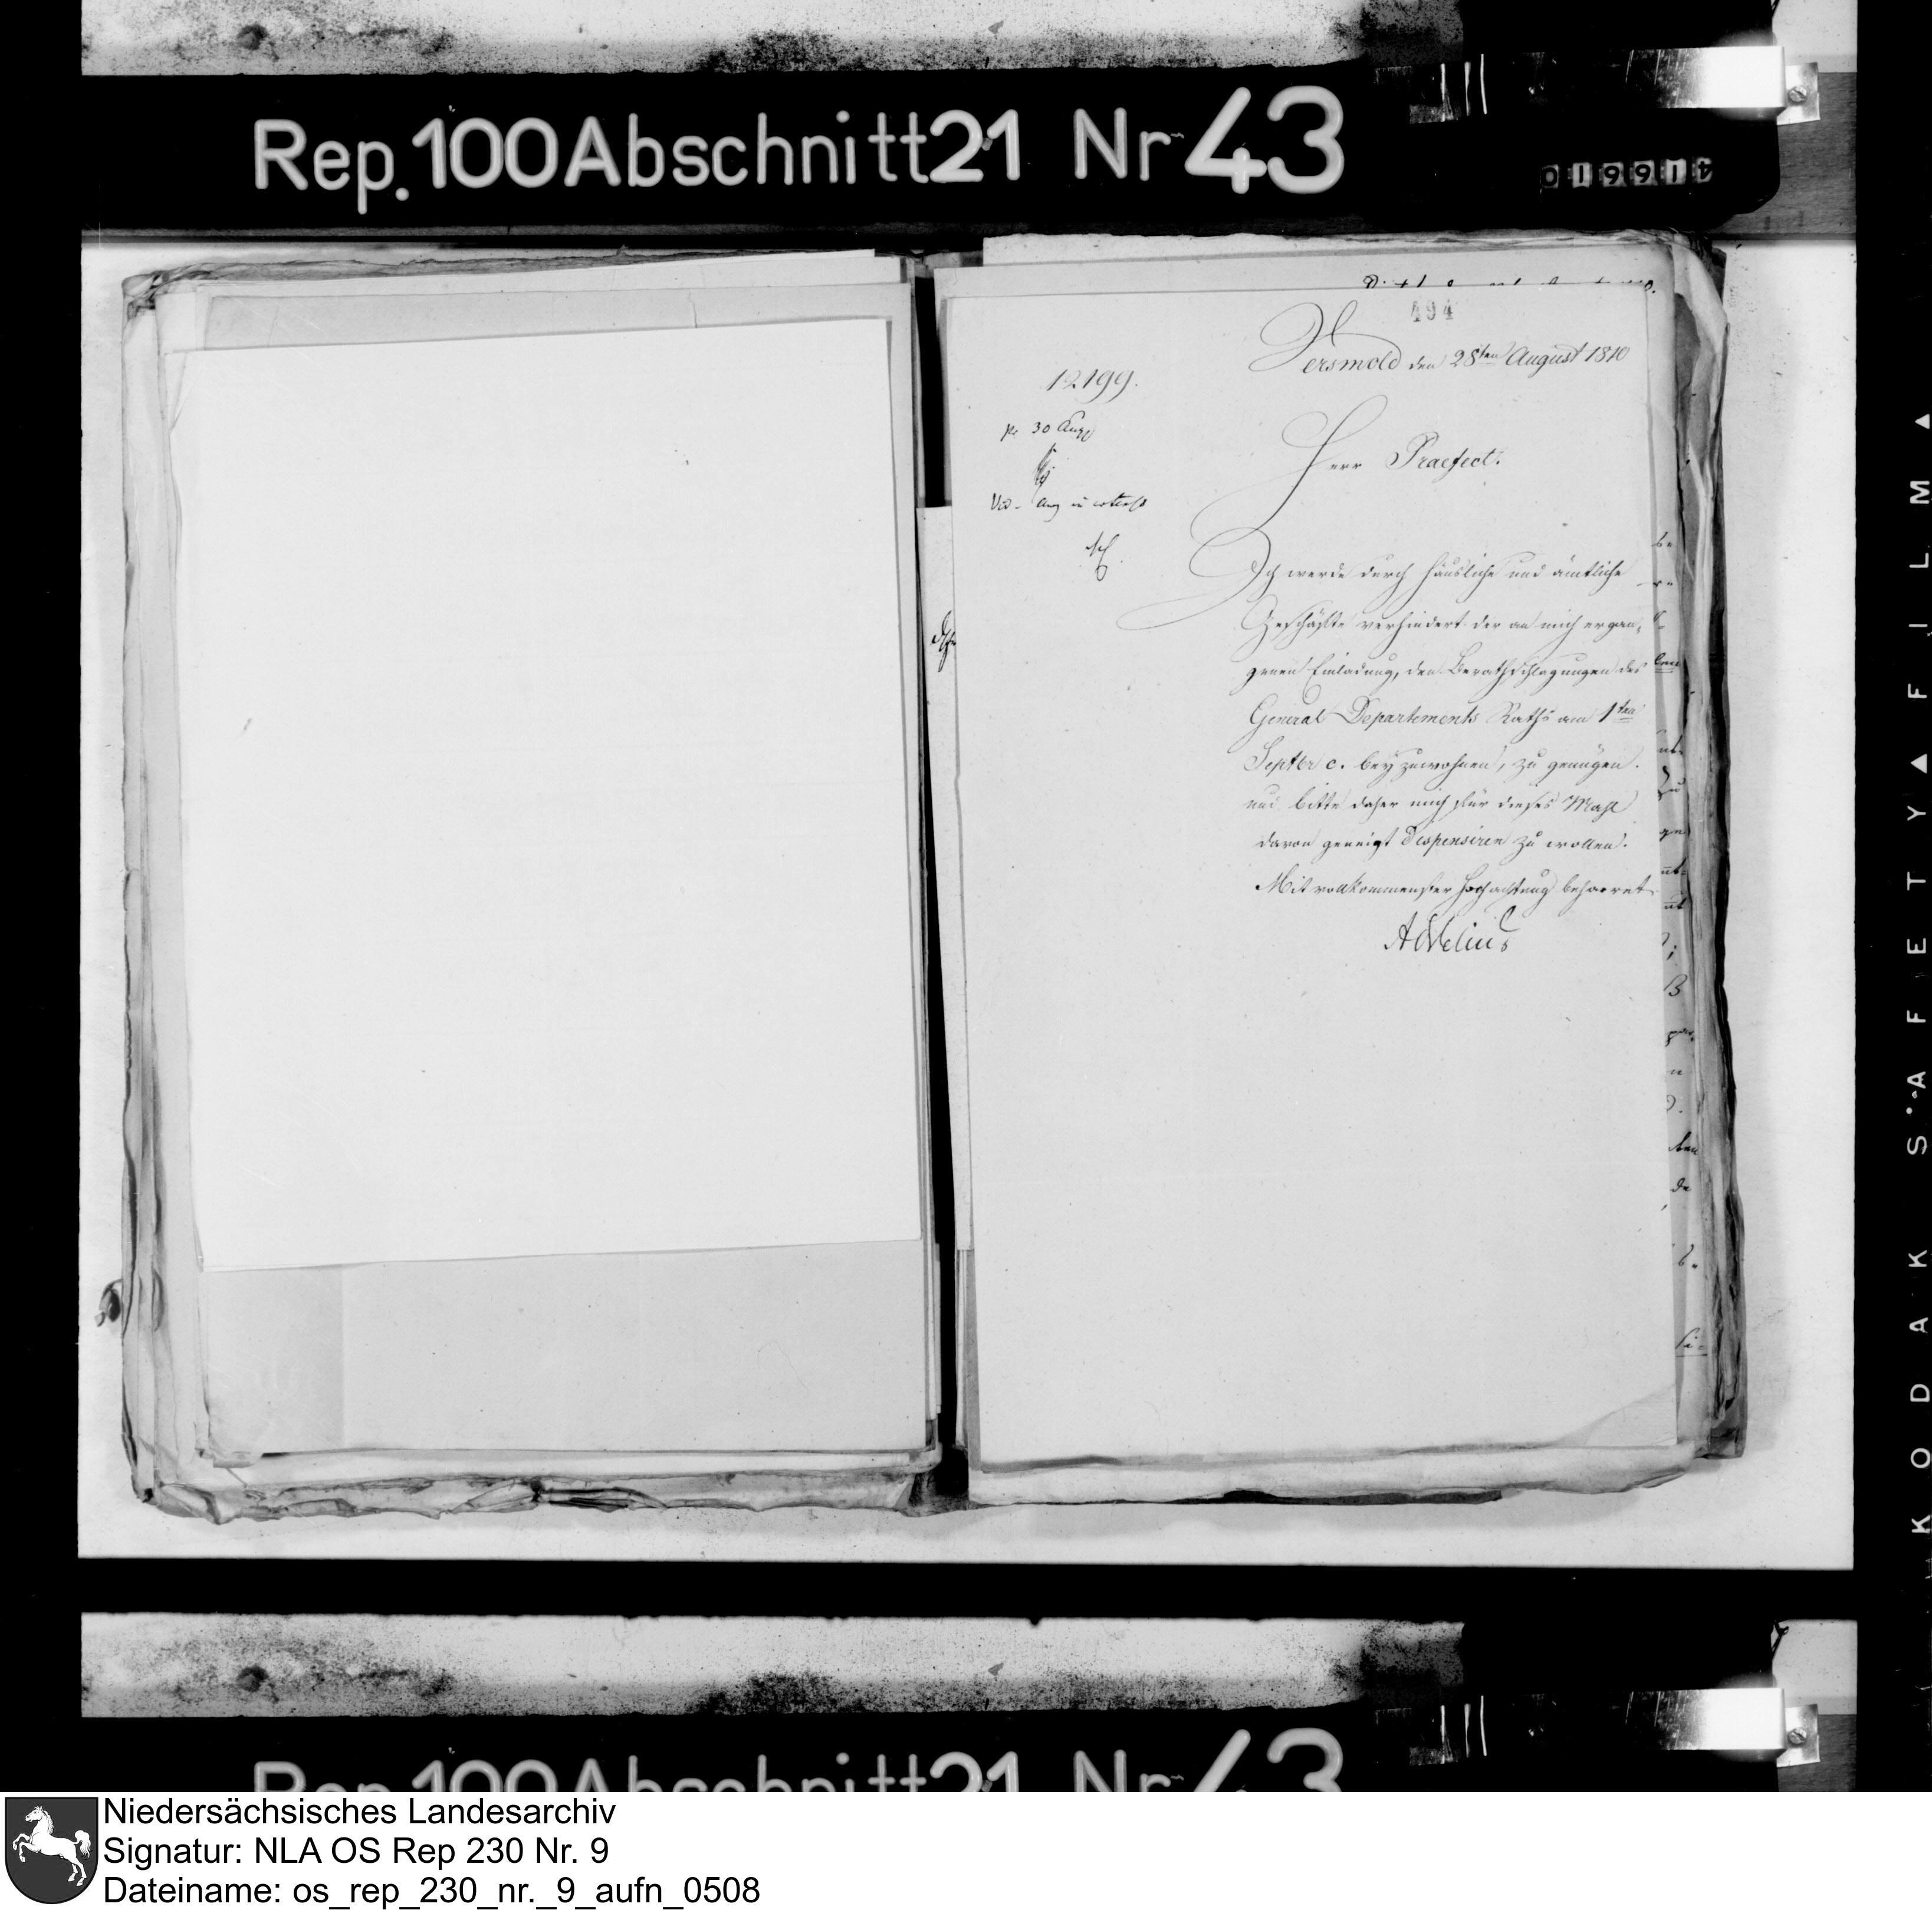 Rep. 100 Abschnitt 21 Nr 43
494
Versmold den 28ten August 1810
12199.
pr 30 Aug
Herr Praefect!
Ich werde durch häusliche und ämtliche
Geschäfte verhindert der an mich ergan-
genen Einladung, den Berathschlagungen des
General Departements Raths am 1ten
Septbr c. beyzuwohnen, zu genügen.
und bitte daher mich für dieses Mahl
davon geneigt dispensiren zu wollen.
Mit vollkommenster Hochachtung beharret
ADelius
KODAK SAFETY FILM
Rep. 100 Abschnitt 21 Nr 43
Niedersächsisches Landesarchiv
Signatur: NLA OS Rep 230 Nr. 9
Dateiname: os_rep_230_nr._9_aufn_0508